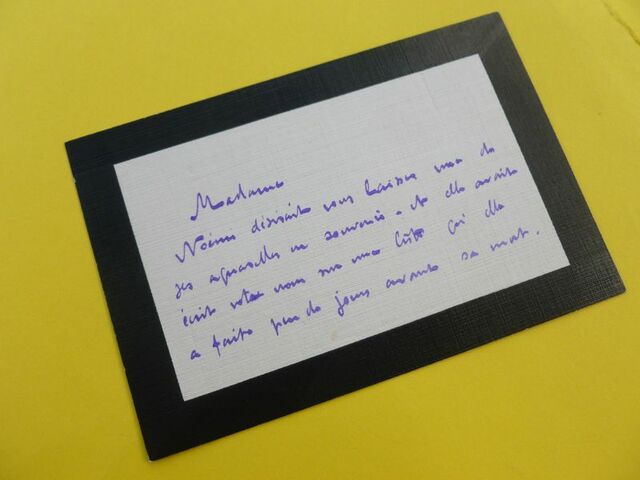 Madame
Noëmi désirait vous laisser une de
ses aquarelles en souvenir - et elle avait
écrit votre nom sur une liste qu'elle
a faite peu de jours avant sa mort.